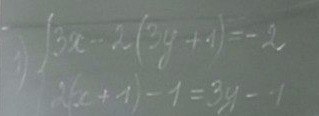 1) { 3x - 2(3y + 1) = -2
2(x + 1) - 1 = 3y - 1